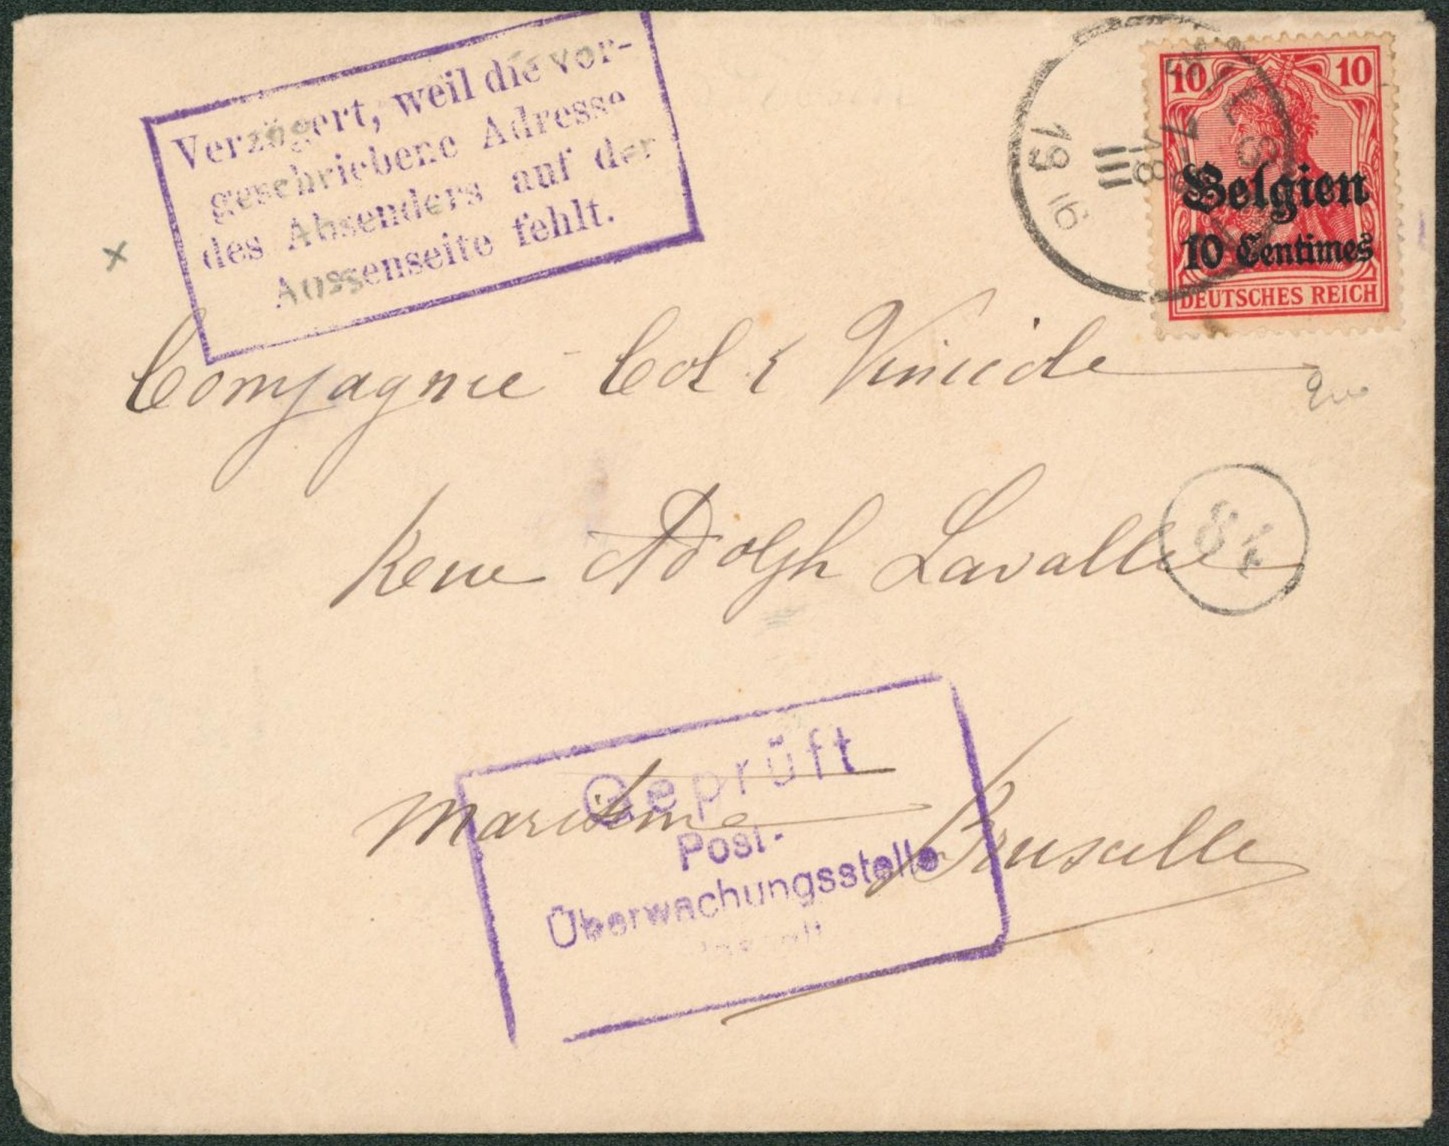 Verzögert, weil die vor-
geschriebene Adresse
des Absenders auf der
Aussenseite fehlt.
10 10
Belgien
10 Centimes
DEUTSCHES REICH
7-8
18
III
19 16
Compagnie Col &
Rue Adolph Lavalle
84
Geprüft
Post-
Überwachungsstelle
Maritime Bruxelle